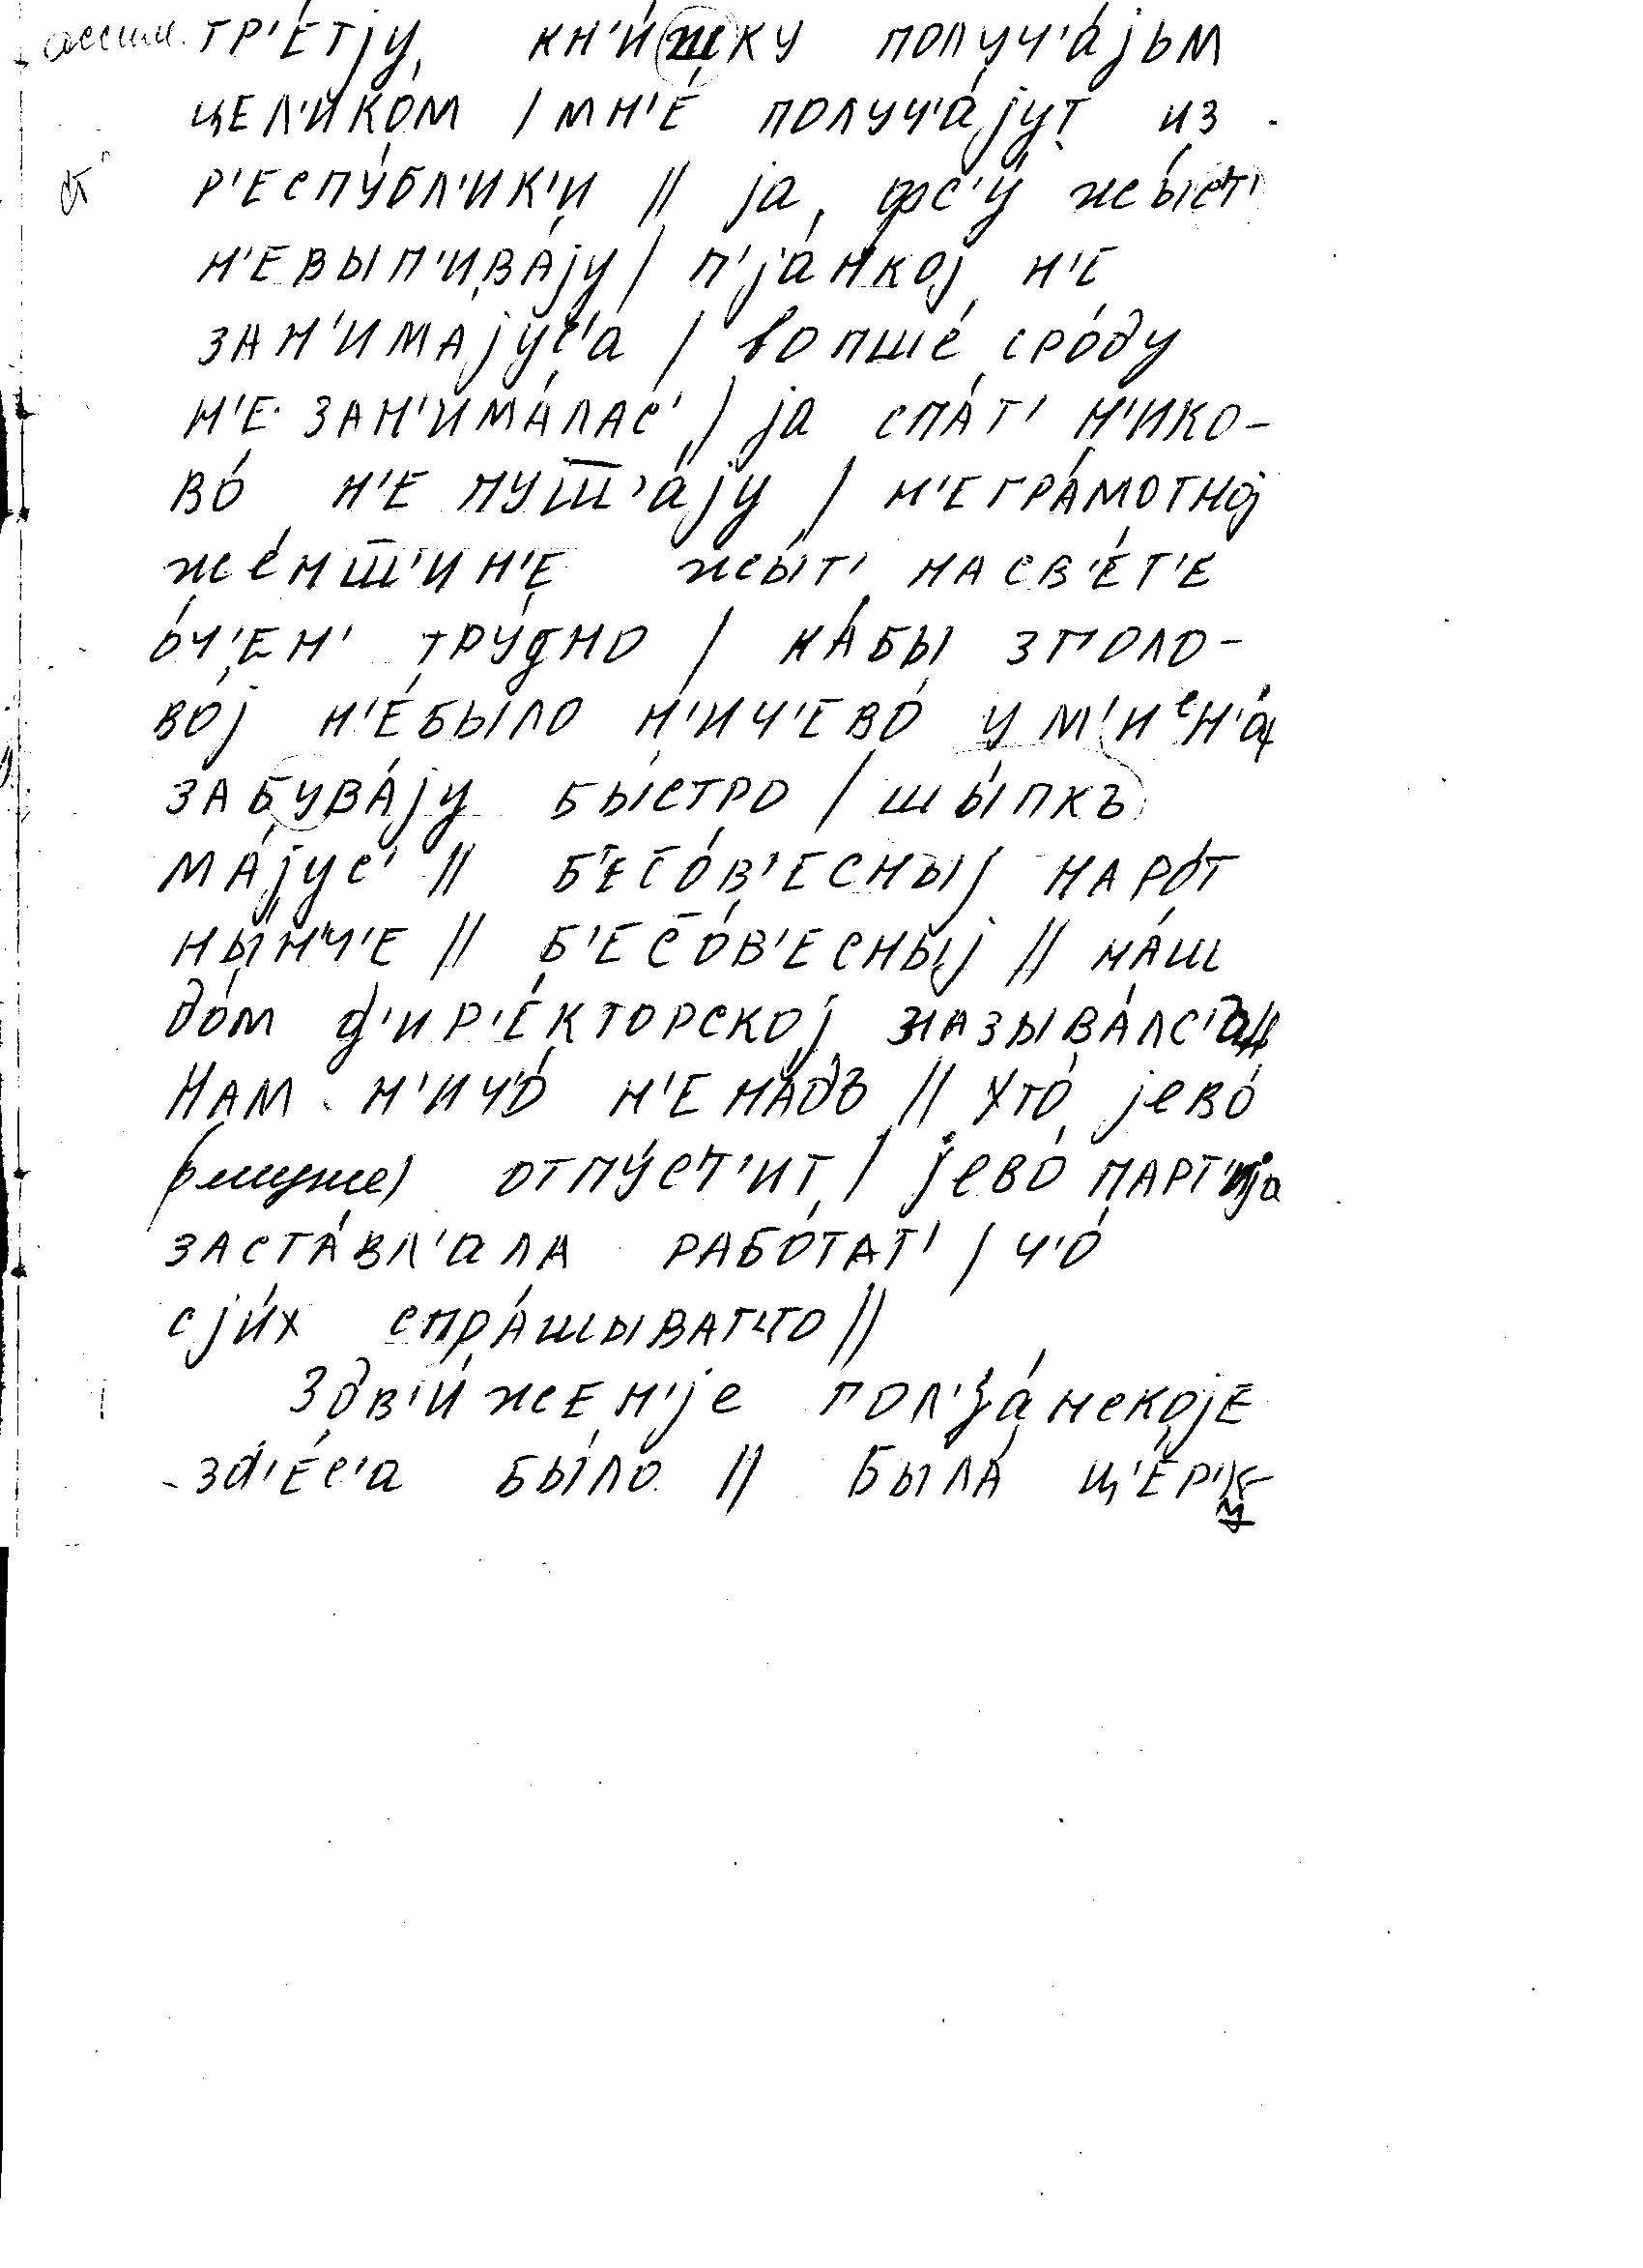 ассим. тр'е́тју кн'и́шку получ'а́јьм
цел'ико́м / мн'е́ получ'а́јут из
р'еспу́бл'ик'и // ја фс'у́ жы́с'т'
н'евып'ива́ју / п'ја́нкој н'е
зан'има́јус'а / вопше́ сро́ду
н'е зан'има́лас' / ја спа́т' н'ико-
во́ н'е пуш̄'а́ју / н'егра́мотној
же́нш̄'ин'е жы́т' на св'е́т'е
о́ч'ен' тру́дно / ка́бы зголо-
во́ј н'е́было н'ич'ево́ у м'иᵉн'а́
забува́ју бы́стро / шы́пкъ
ма́јус' // б'ес̄о́в'есныј наро́т
ны́н'ч'е // б'ес̄о́в'есныј // на́ш
до́м д'ир'е́кторској называ́лс'а //
Нам н'ич'о́ н'е на́дъ // хто́ јево́
(муже) отпу́с'т'ит / јево́ па́рт'ија
заста́вл'ала рабо́тат' / ч'о́
сји́х спра́шыват'то //
Здв'и́жен'је пол'за́нскоје
зд'е́с'а бы́ло // Была́ ц'е́р'к
у